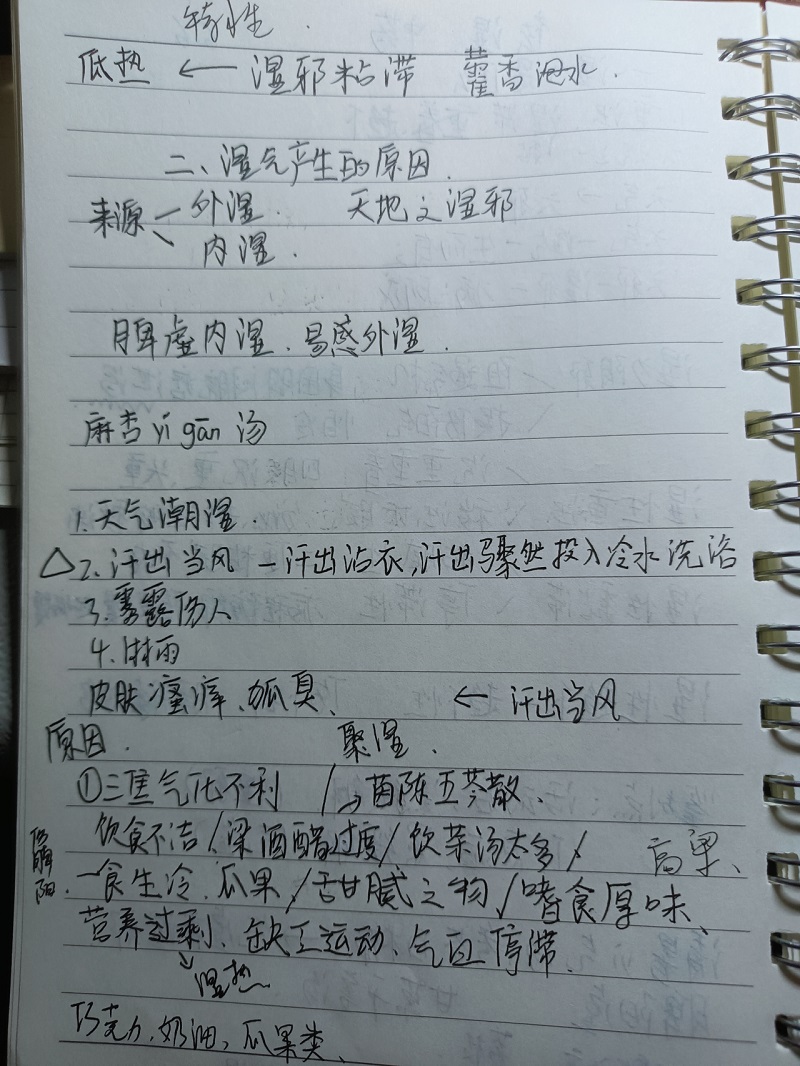 特性.
低热 ← 湿邪粘滞 藿香泡水.
二、湿气产生的原因.
来源 外湿. 天地之湿邪
内湿.
脾虚内湿.易感外湿.
麻杏yǐ gān汤
1.天气潮湿.
△2.汗出当风 — 汗出沾衣,汗出骤然投入冷水洗浴
3.雾露伤人
4.淋雨
皮肤瘙痒、狐臭、 ← 汗出当风
原因. 聚湿.
①三焦气化不利 / → 茵陈五苓散.
饮食不洁/梁酒醋过度/饮茶汤太多/ 高粱、
伤脾阳.—食生冷.瓜果/甘腻之物/嗜食厚味、
营养过剩、缺乏运动、气血停滞.
↓湿热
巧克力.奶油、瓜果类、